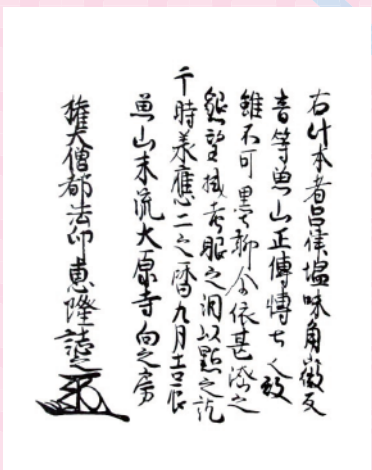 右此本者呂律塩味角徴反
音等魚山正傳博士之故
雖不可墨聊今依甚深之
懇望拭老眼之以點之訖
于時承應二之暦九月吉辰
魚山末流大原寺向之房
権大僧都法印恵隆誌之